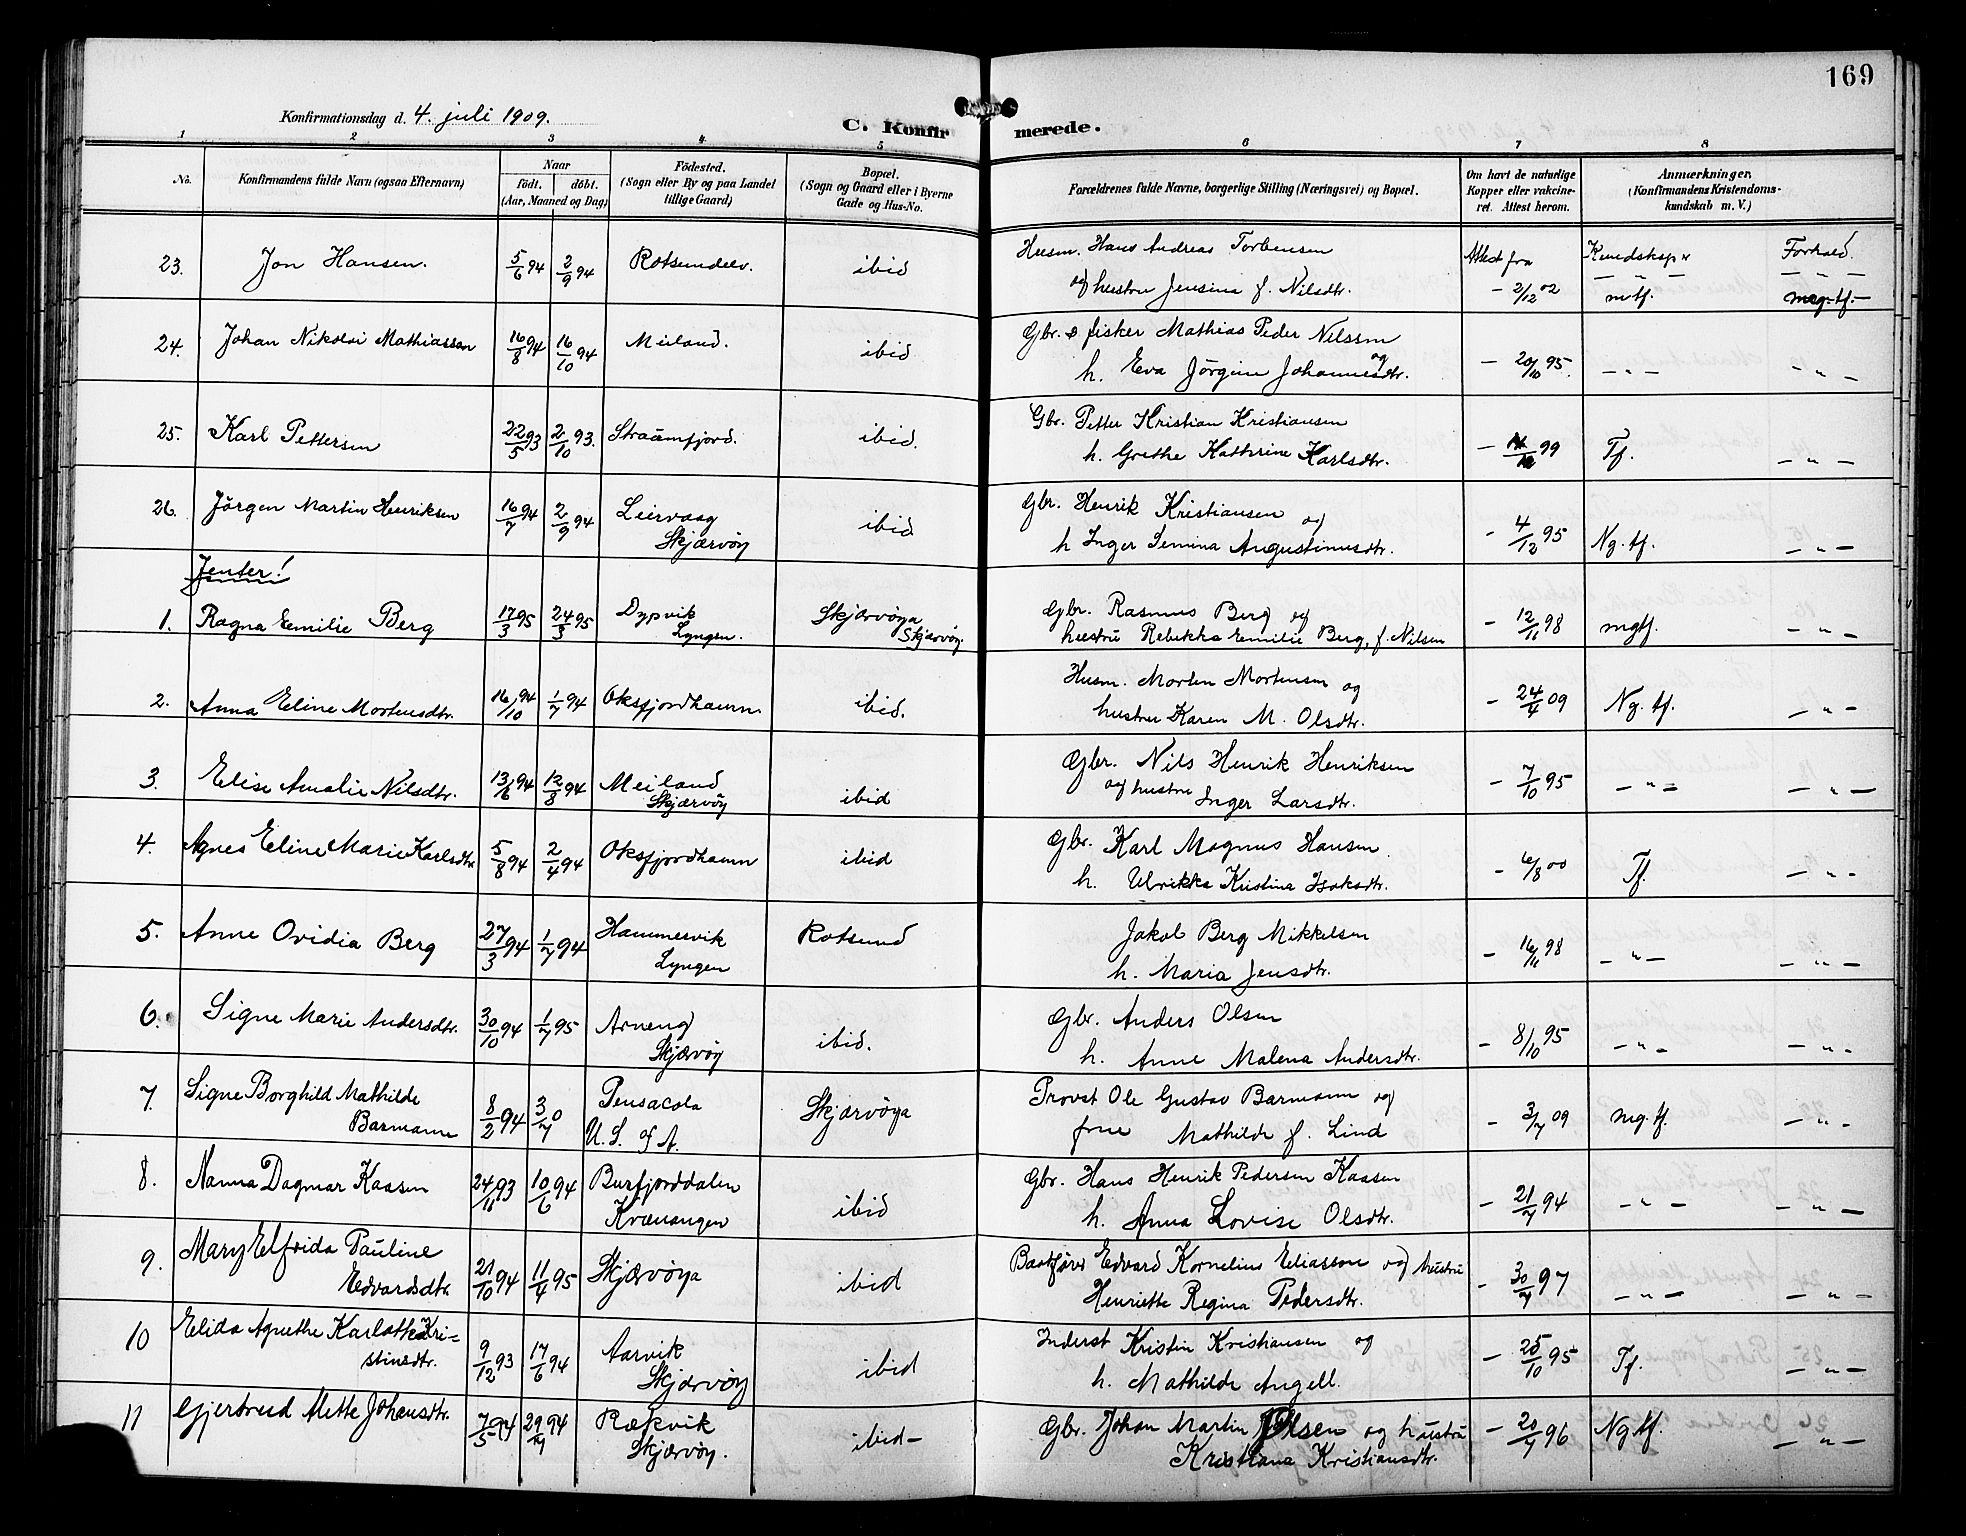 169
Konfirmationsdag d. 4. juli 1909.
C. Konfirmerede.
1 2 3 4 5 6 7 8
No.
Konfirmandens fulde Navn (ogsaa Efternavn)
Naar
født. døbt.
(Aar, Maaned og Dag)
Fødested.
(Sogn eller By og paa Landet
tillige Gaard)
Bopæl.
(Sogn og Gaard eller i Byerne
Gade og Hus-No.
Forældrenes fulde Navne, borgerlige Stilling (Næringsvei) og Bopæl.
Om havt de naturlige
Kopper eller vakcine-
ret. Attest herom.
Anmærkninger.
(Konfirmandens Kristendoms-
kundskab m. V.)
23. Jon Hansen. 5/6 94 2/9 94 Rotsundelv. ibid
Husm. Hans Andreas Torbensen
og hustru Jensina f. Nilsdtr.
Attest fra
– 2/12 02
Kundskaper Forhold.
– " – – " –
mtf. meg. tf. –
24. Johan Nikolai Mathiassen 16/8 94 16/10 94 Meiland. ibid
Gbr. & fisker Mathias Peder Nilssen
og
h. Eva Jörgine Johannesdtr.
– 20/10 95. – " – – " –
25. Karl Pettersen 22/5 93 2/10 93. Straumfjord. ibid.
Gbr. Petter Kristian Kristiansen
h. Grethe Kathrine Karlsdtr.
99 Tf. – " –
26. Jörgen Martin Henriksen 16/7 94 2/9 94 Leirvaag
Skjærvöy
ibid
Gbr. Henrik Kristiansen
og
h Inger Semina Augustinusdtr.
– 4/12 95 Ng. tf. – " –
Jenter!
1. Ragna Emilie Berg 17/3 95 24/3 95 Dypvik
Lyngen.
Skjærvöya
Skjærvöy
Gbr. Rasmus Berg og
hustru Rebekka Emilie Berg, f. Nilsen
– 12/11 98 mgtf. – " –
2. Anna Eline Mortensdtr. 16/10 94 1/7 94 Oksfjordhamn ibid.
Husm. Morten Mortensen og
hustru Karen M. Olsdtr.
– 24/4 09 Ng. tf. – " –
3. Elise Amalie Nilsdtr. 13/6 94 12/8 94 Meiland
Skjærvöy
ibid
Gbr. Nils Henrik Henriksen
og hustru Inger Larsdtr.
– 7/10 95 – " – – " –
4. Agnes Eline Marie Karlsdtr 5/8 94 2/4 94 Oksfjordhamn ibid
Gbr. Karl Magnus Hansen
h. Ulrikka Kristina Isaksdtr.
– 6/8 00 Tf. – " –
5. Anne Ovidia Berg 27/3 94 1/7 94 Hammervik
Lyngen
Rotsund
Jakob Berg Mikkelsen
h. Maria Jensdtr.
– 16/11 98 – " – – " –
6. Signe Marie Andersdtr. 30/10 94 1/7 95 Arneng
Skjærvöy
ibid.
Gbr. Anders Olsen
h. Anne Malena Andersdtr.
– 8/10 95 – " – – " –
7. Signe Borghild Mathilde
Barmann
8/2 94 3/7 0
Pensacola
U. S. of A.
Skjærvöya
Provst Ole Gustav Barmann og
frue Mathilde f. Lind
– 3/7 09 mg. tf. – " –
8. Nanna Dagmar Kaasen 24/11 93 10/6 94 Burfjorddalen
Kvænangen
ibid
Gbr. Hans Henrik Pedersen Kaasen
h. Anna Lovise Olsdtr.
– 21/7 94 – " – – " –
9. Mary Elfrida Pauline
Edvardsdtr.
21/10 94 11/4 95 Skjærvöya ibid
Baatförer Edvard Kornelius Eliassen og hustru
Henriette Regina Pedersdtr.
– 30/7 97 – " – – " –
10 Elida Agnethe Karlotha Kri-
stinedtr.
9/12 93 17/6 94 Aarvik
Skjærvöy
ibid
Inderst Kristin Kristiansen og
h. Mathilde Angell.
– 25/10 95 Tf. – " –
11 Gjertrud Mette Johansdtr. 7/5 94 29/7 94 Rækvik
Skjærvöy.
ibid –
Gbr. Johan Martin Olsen og hustru
Kristiana Kristiansdtr.
– 20/7 96 Ng tf. – " –